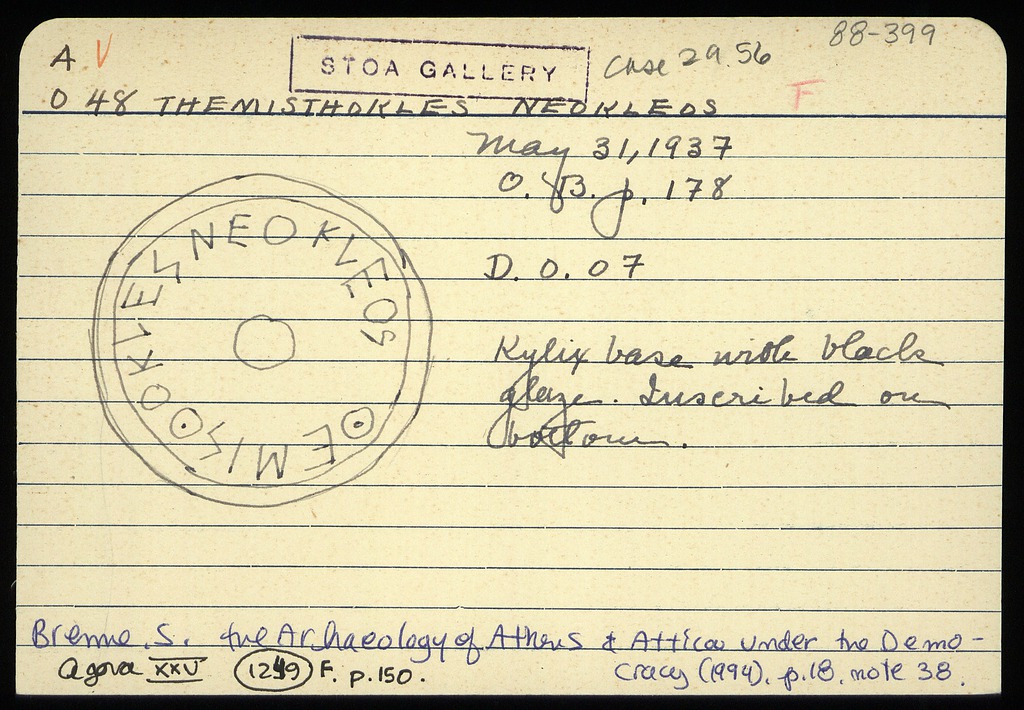 A V
STOA GALLERY
Case 29 56
88-399
O 48 THEMISTHOKLES NEOKLEOS
F
May 31, 1937
O. ΙΒ. p. 178
ΘEMISΘOKLES NEOKLEOS
D. 0.07
Kylix base with black
glaze. Inscribed on
bottom.
Brenne, S. the Archaeology of Athens & Attica under the Demo-
cracy (1994), p.18, note 38.
Agora XXV 1249 F. p.150.